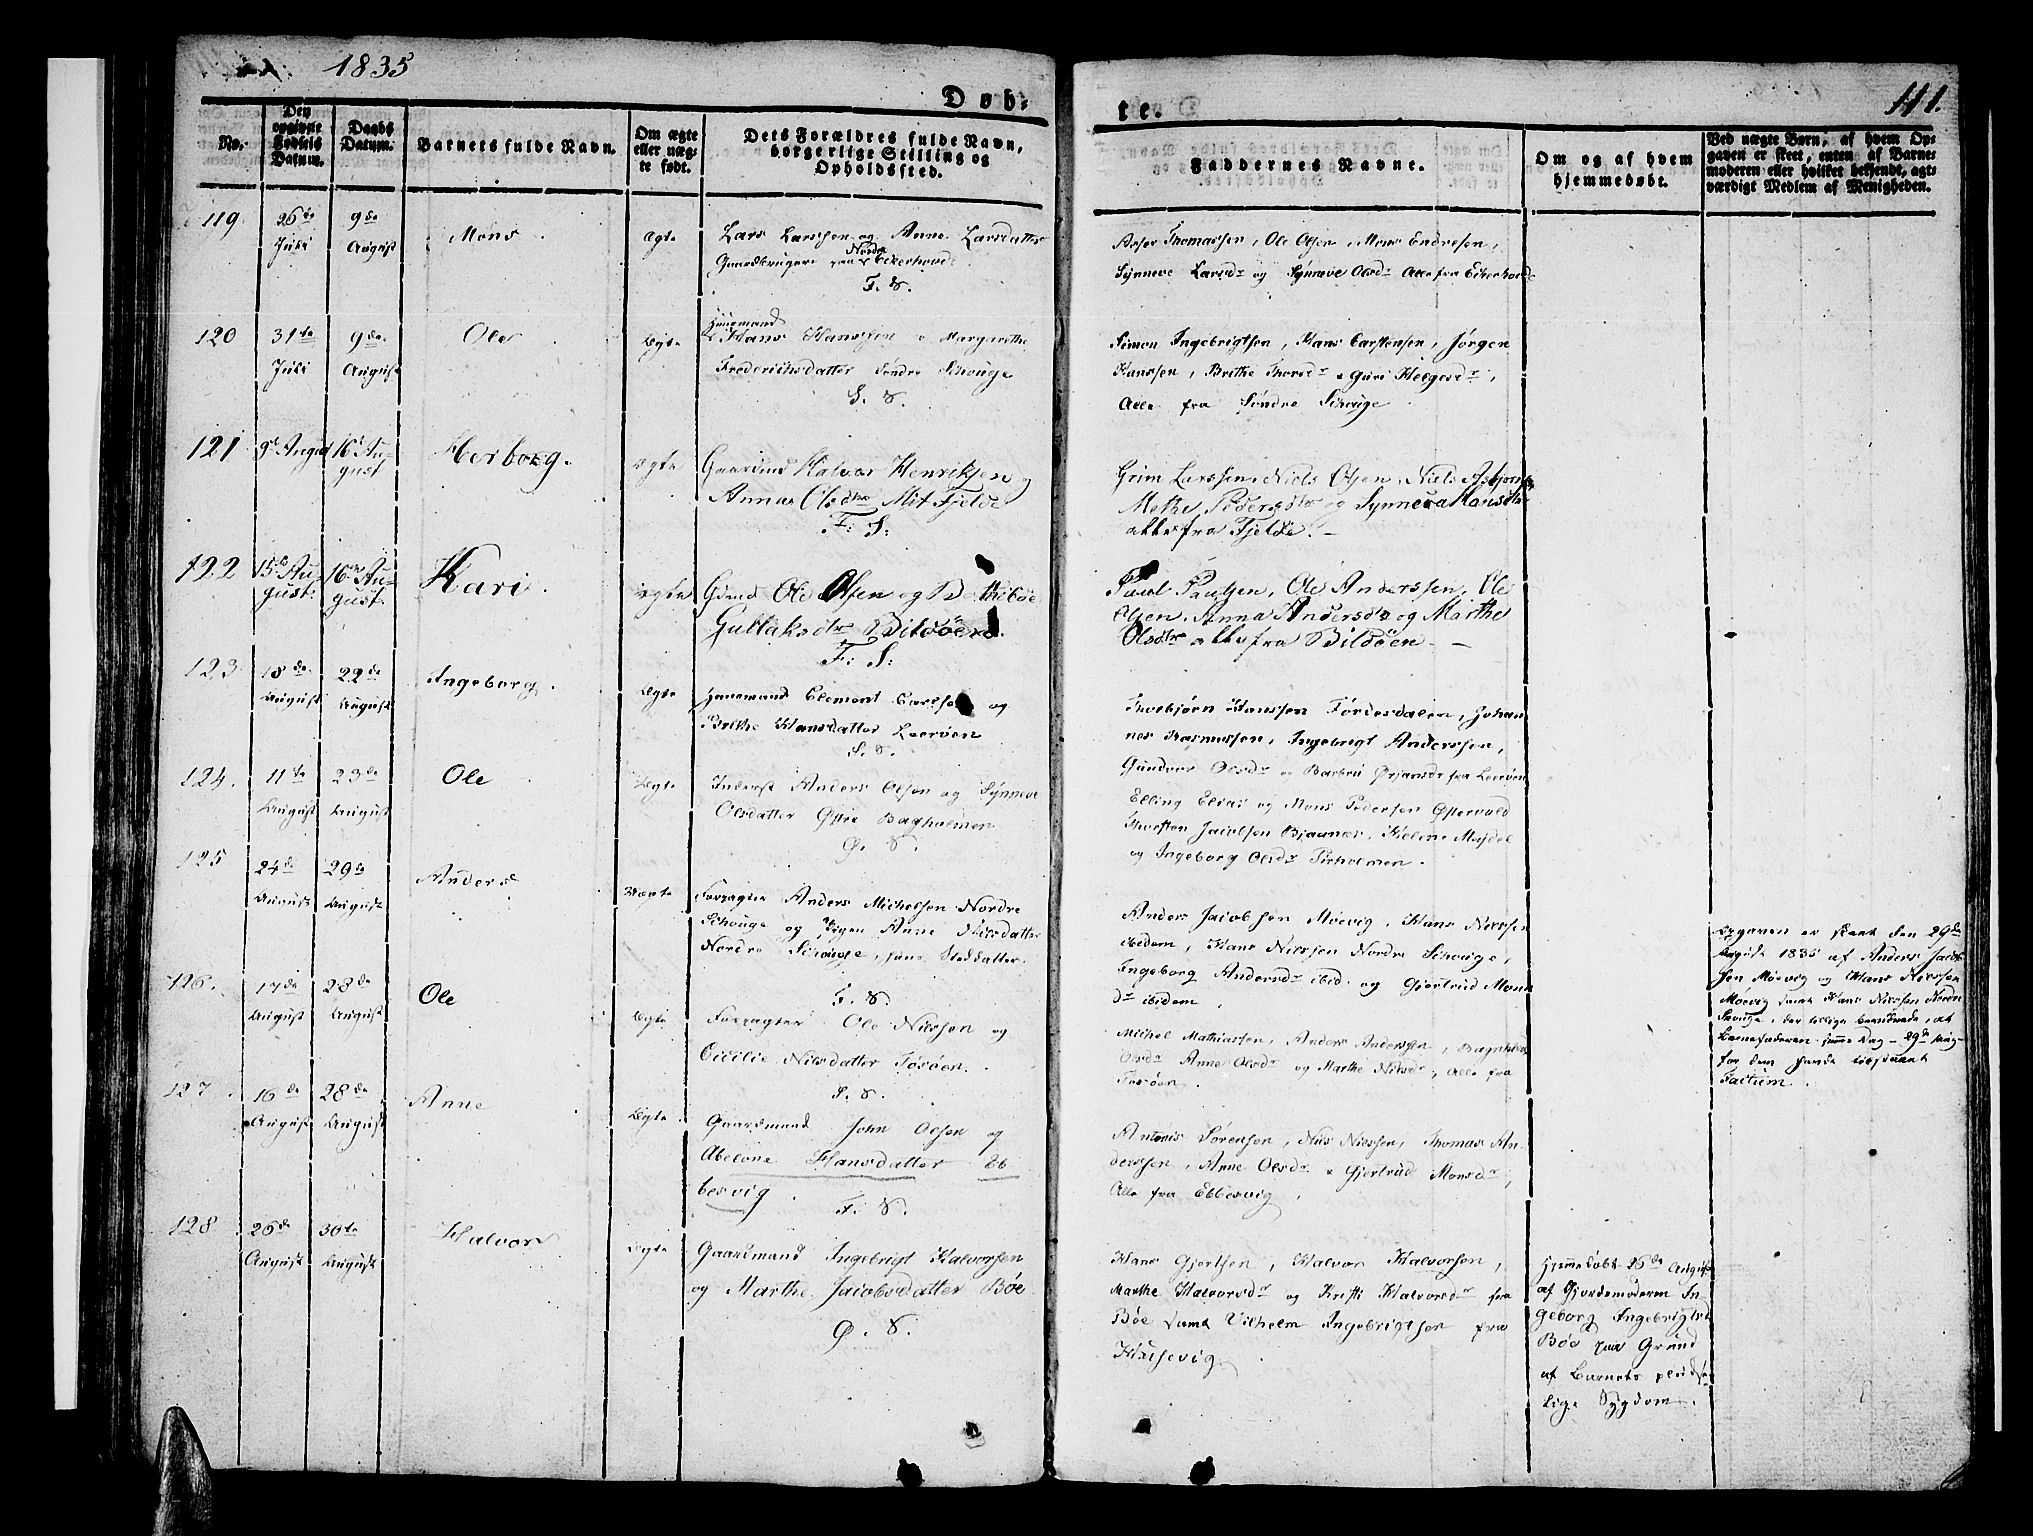 1835
41.
Døb-
te.
No.
Den opgivne Fødsels Datum.
Daabs Datum.
Barnets fulde Navn.
Om ægte eller uægte født.
Dets Forældres fulde Navn, borgerlige Stilling og Opholdssted.
Faddernes Navne.
Om og af hvem hjemmedøbt.
Ved uægte Børn, af hvem Opgaven er skeet, enten af Barnemoderen eller hvilket bekjendt, agtværdigt Medlem af Menigheden.
119.
26de Juli
9de August
Mons
Ægte
Lars Larssen og Anne Larsdatter
Gaardbruger paa Nordre Eckerhovd
F. S.
Thomassen, Ole Olsen, Mons Endresen,
Synneve Larsdr og Synneve Olsdr Alle fra Eckerhovd
120
31te Juli
9de August
Ole
Ægte
Huusmand
Hans Hanssen & Margarethe
Frederichsdatter Søndre Schouge
S. S.
Simon Ingebrigtsen, Hans Carstensen, Jørgen
Hanssen, Brithe Thorsdr & Guri Helgesdr,
Alle fra Søndre Schouge
121
9de August
16de August
Herborg.
ægte
Gaardmd Halvor Henriksen og
Anna Olsdtr Mit Fjelde
F: S:
Grim Larssen, Niels Olsen, Niels Asbjørns
Methe Pedersdtr og Synneva Hansdtr
alle fra Fjelde. -
122
15de August.
16de August.
Kari.
ægte
Gdmd Ole Olsen og Brithe
Gullaksdtr Bildøen.
F: S:
Paul Paulsen, Ole Anderssen, Ole
Olsen, Anna Andersdtr og Marthe
Olsdtr alle fra Bildøen. -
123.
18de August
22de August
Ingeborg.
Ægte
Huusmand Clement Carlsen og
Brithe Hansdatter Leerøen
S. S.
Thorbjørn Hanssen Fördesdalen, Johan-
nes Rasmussen, Ingebrigt Anderssen,
Gundvor Olsdr og Barbru Ørjansdr fra Leerøen
124.
11te August
23de August
Ole
Ægte
Inderst Anders Olsen og Synneve
Olsdatter Østre Bagholmen
Ø. S.
Elling Elias og Mons Pedersen Østervold
Thorsten Jacobsen Bjaanæs, Helene
og Ingeborg Olsdr
125
24de August
29de August
Anders
Uægte
Anders Michelsen Nordre
Schouge og Pigen Anne Nilsdatter
Nordre Schouge, hans Steddatter.
F. S.
Anders Jacobsen Møevig, Hans Nilssen
ibidem, Hans Nilssen Nordre Schouge,
Ingeborg Andersdr ibid. og Gjertrud Mons
dr ibidem.
Opgaven er skeet den 29de
August 1835 af Anders Jacob-
sen Møevig og Hans Nilssen
Møevig samt Hans Nilssen Nordre
Skouge, der tillige bevidnede, at
Barnefaderen samme Dag - 29de Aug -
for dem havde tilstaaet
Factum.
126.
17de August
28de August
Ole
Ægte
Ole Nilssen og
Cicilie Nilsdatter Tøsøen.
S. S.
Michel Mathiassen, Anders Anderssen,
Olsdr Anne Olsdr og Marthe Nilsdr, Alle fra
Tøsøen.
127.
16de August
28de August
Anne
Ægte
Gaardmand John Olsen og
Abelone Hansdatter Eb-
besvig.
F. S.
Antonis Sørensen, Nils Nilssen, Thomas An-
derssen, Anne Olsdr & Gjertrud Monsdr,
Alle fra Ebbesvig,
128.
26de August
30te August
Halvor
Ægte
Gaardmand Ingebrigt Halvorsen
og Marthe Jacobsdatter Bøe
Ø. S.
Hans Gjertsen, Halvor Halvorsen,
Marthe Halvorsdr og Kristi Halvorsdr fra
Bøe samt Vilhelm Ingebrigtsen fra
Hjemmedøbt 26de August
af Gjordemoderen In-
geborg Ingebrigtsd
Bøe paa Grund
af Barnets pludse-
lige Sygdom.